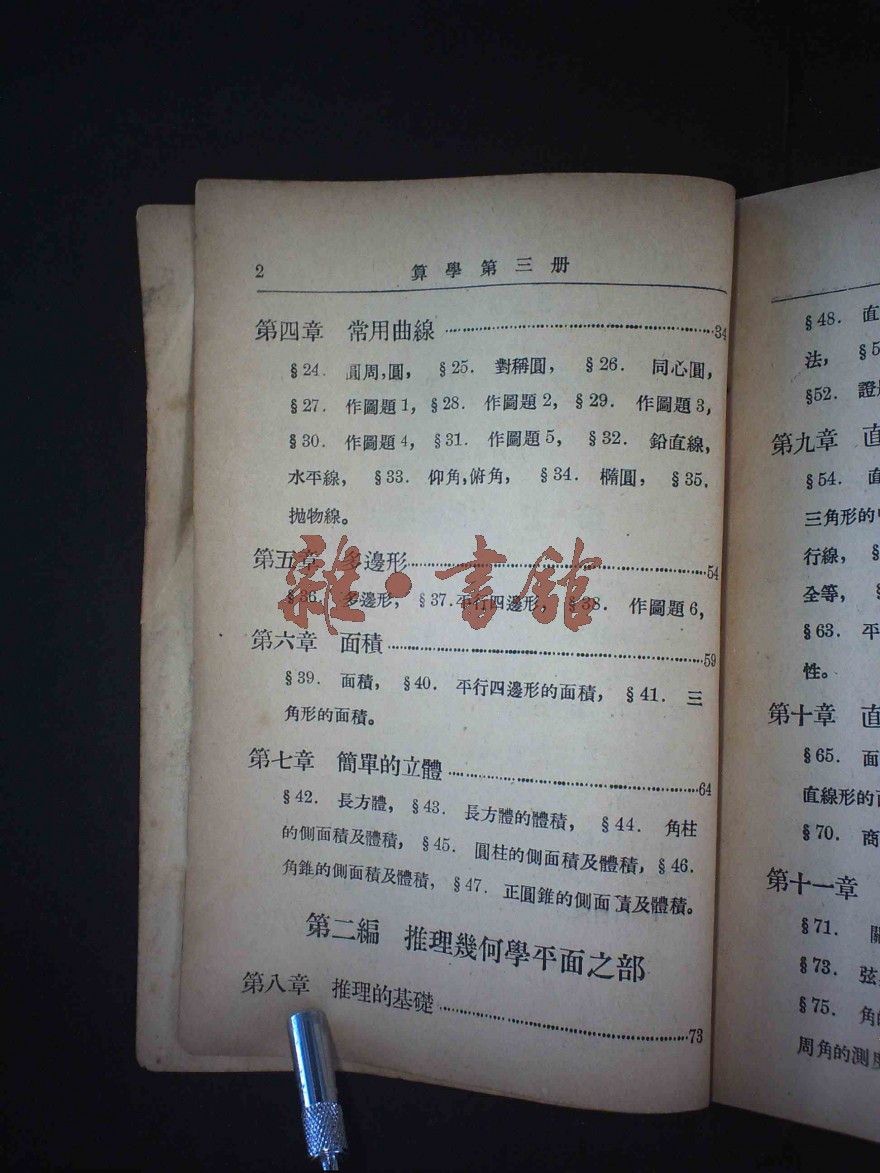 2 算學第三册
第四章 常用曲線 ……34
§24. 圓周,圓, §25. 對稱圓, §26. 同心圓,
§27. 作圖題1, §28. 作圖題2, §29. 作圖題3,
§30. 作圖題4, §31. 作圖題5, §32. 鉛直線,
水平線, §33. 仰角,俯角, §34. 橢圓, §35.
拋物線。
第五章 多邊形……54
§36. 多邊形, §37.平行四邊形, §38. 作圖題6,
第六章 面積……59
§39. 面積, §40. 平行四邊形的面積, §41. 三
角形的面積。
第七章 簡單的立體……64
§42. 長方體, §43. 長方體的體積, §44. 角柱
的側面積及體積, §45. 圓柱的側面積及體積, §46.
角錐的側面積及體積, §47. 正圓錐的側面積及體積。
第二編 推理幾何學平面之部
第八章 推理的基礎……73
雜·書館
§48. 直
法, §5
§52. 證
第九章 直
§54. 直
三角形的
行線, §
全等, §
§63. 平
性。
第十章 直
§65. 面
直線形的
§70. 商
第十一章
§71.
§73. 弦
§75. 角
周角的測度